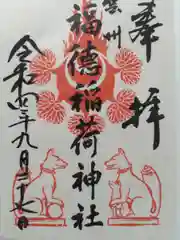 奉拝
州
福徳稲荷神社
令和四年九月二十日